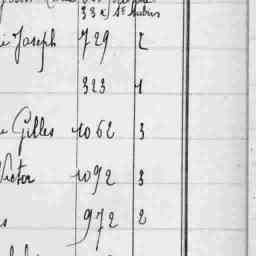 33 x St Aubin
Joseph 729 2
323 1
Gilles 1062 3
Victor 1092 3
972 2